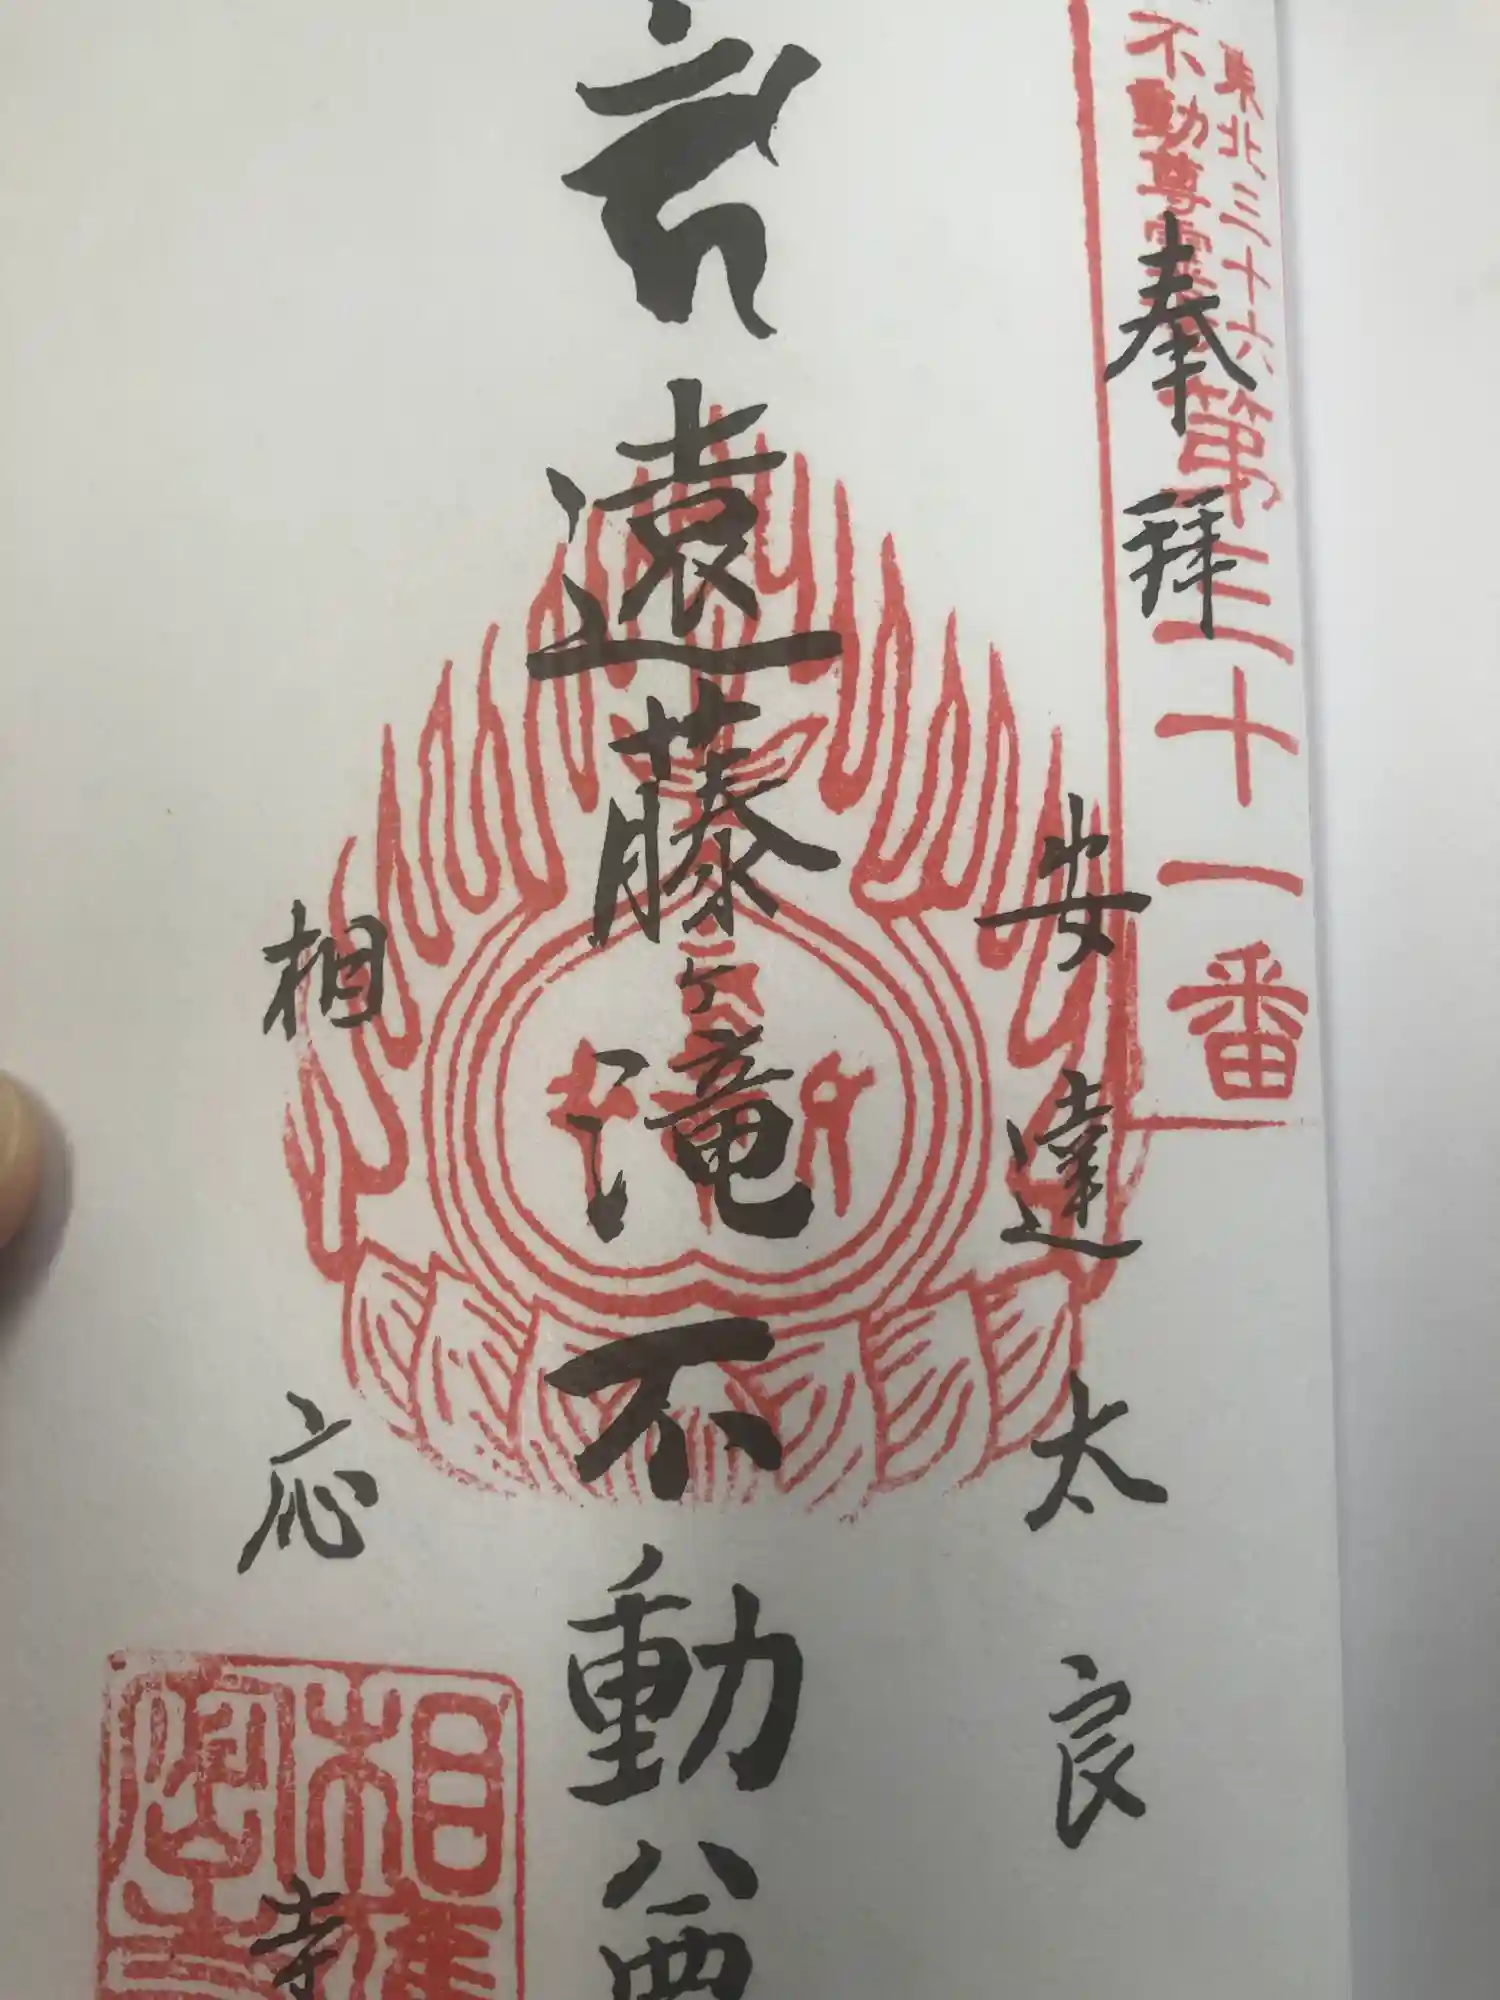 東北三十六
不動尊霊
第三十一番
奉拝
安達太良
遠藤ヶ滝不動尊
相応寺
相應
密寺